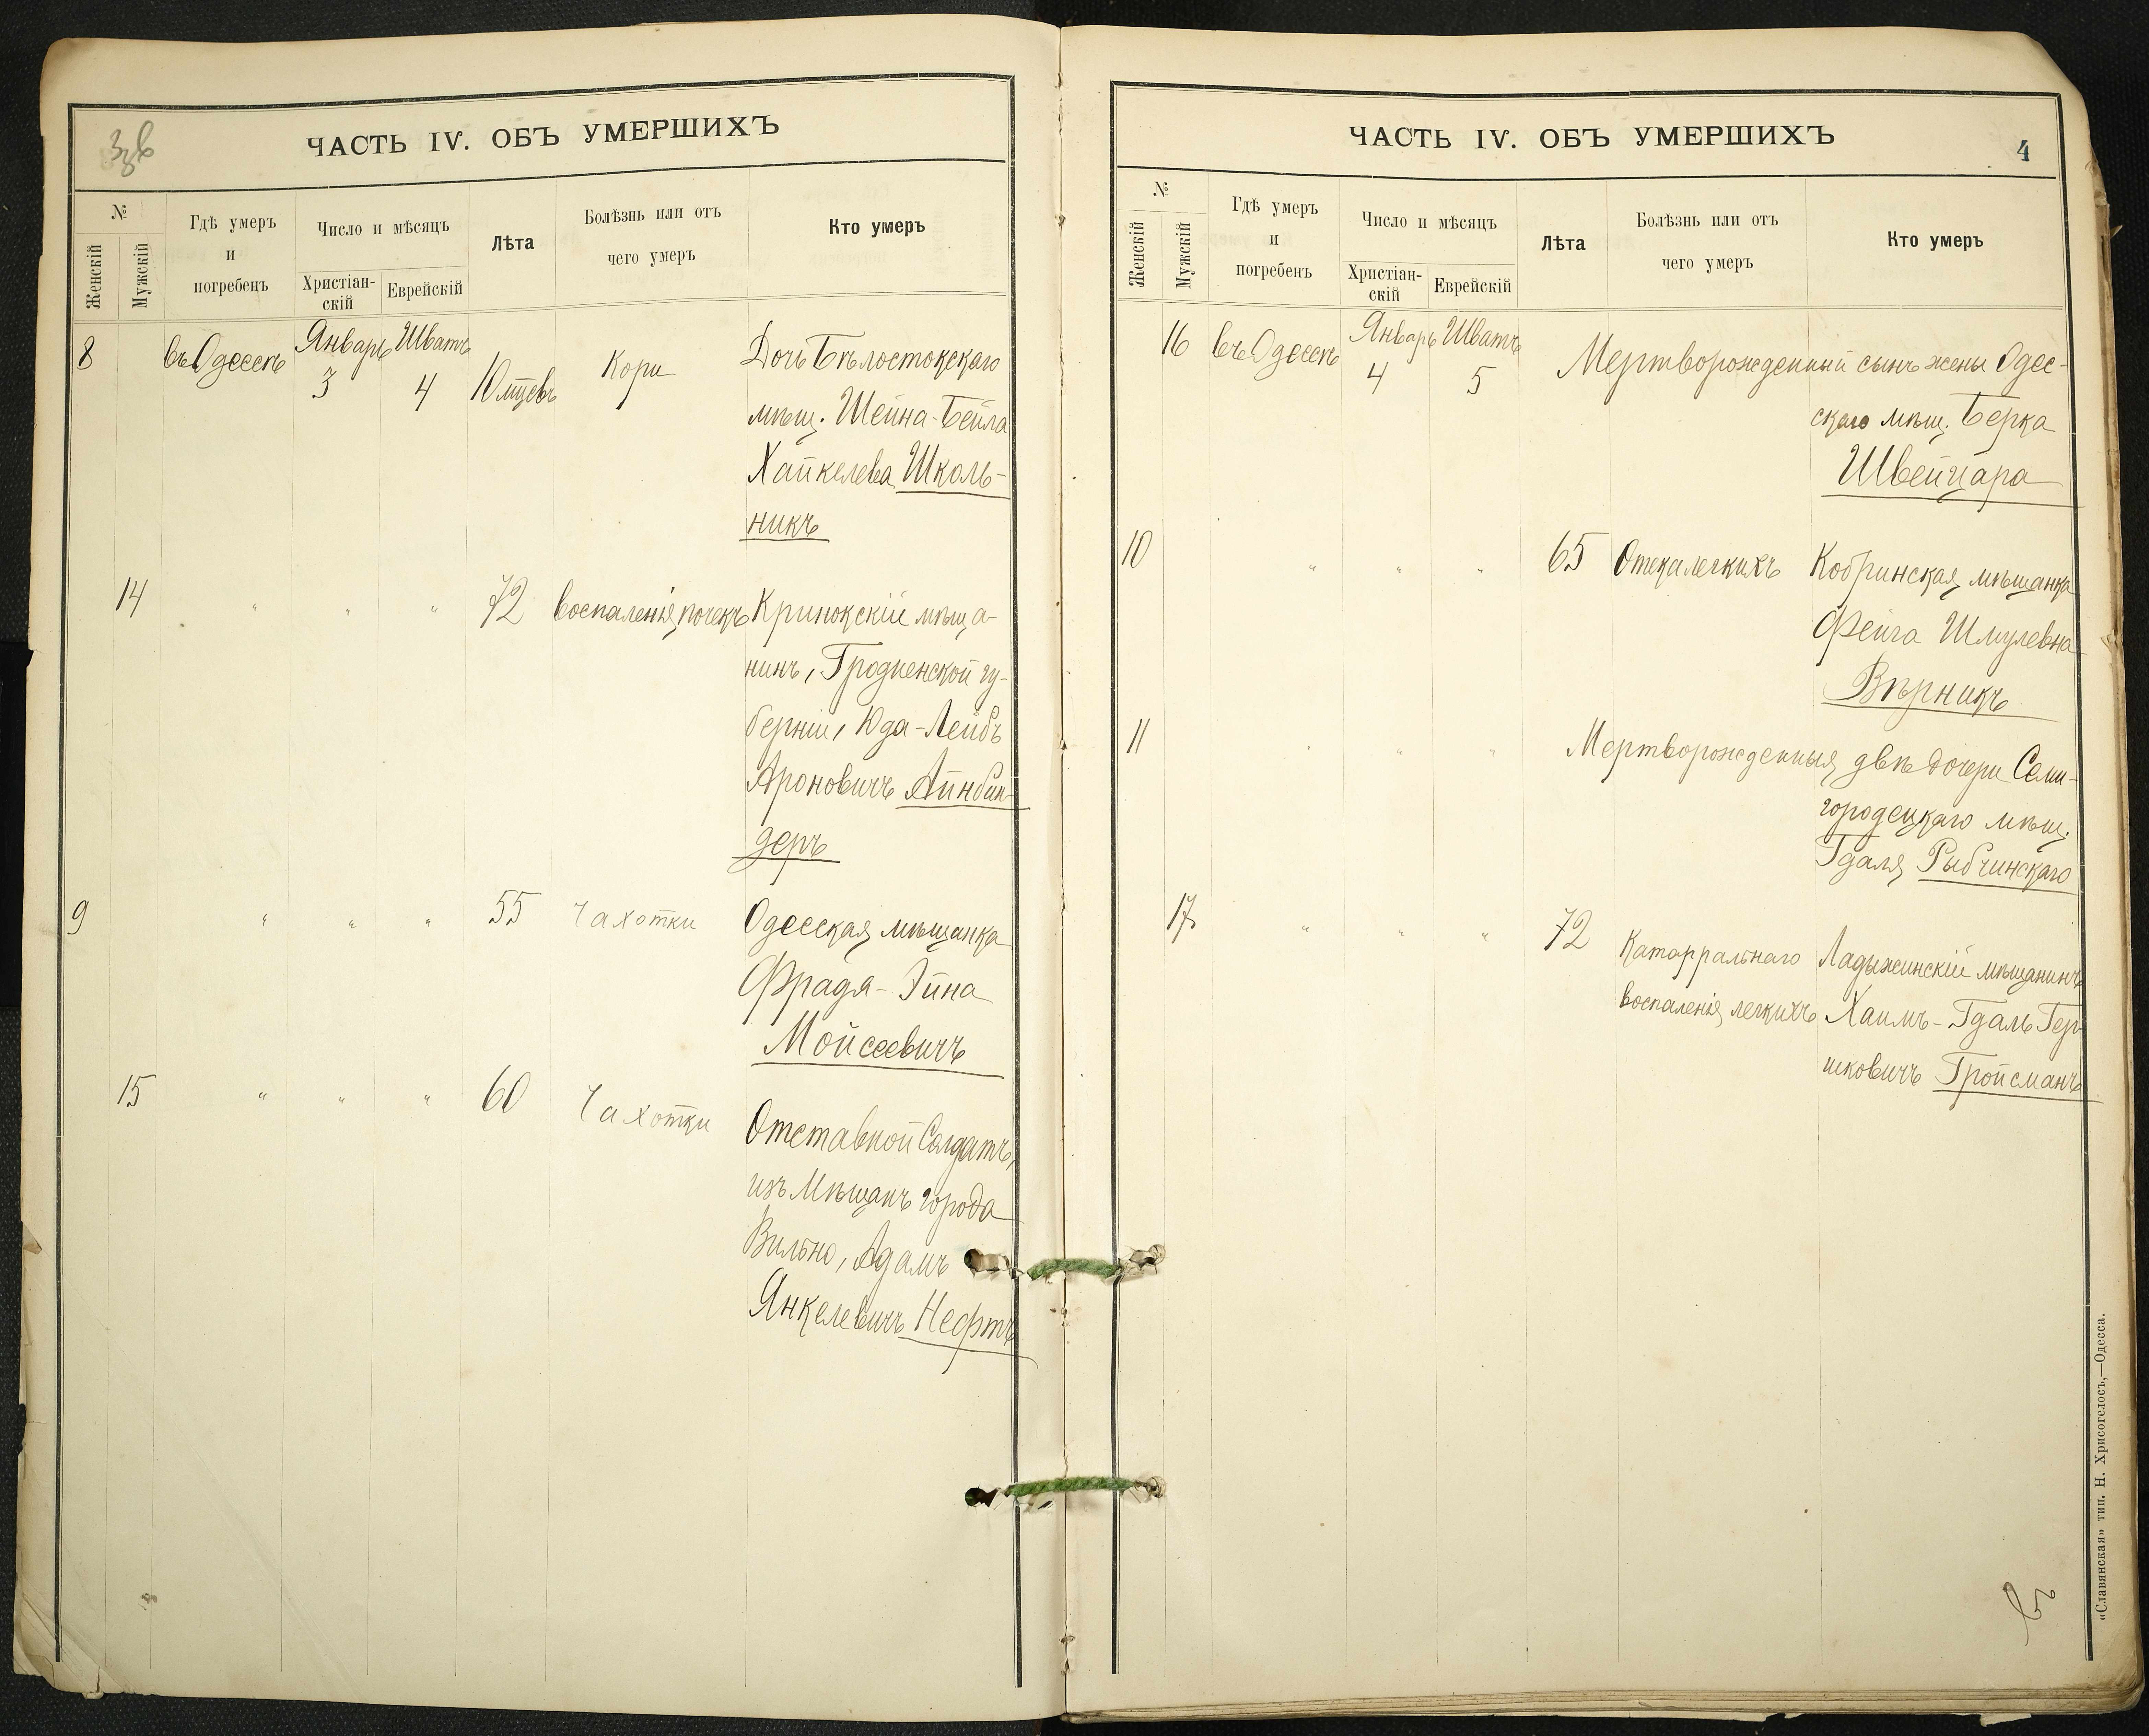 Ззв
ЧАСТЬ IV. ОБЪ УМЕРШИХЪ
№
Женскій
Мужскій
Гдѣ умеръ
и
погребенъ
Число и мѣсяцъ
Христіан-
скій
Еврейскій
Лѣта
Болѣзнь или отъ
чего умеръ
Кто умеръ
8 въ Одессѣ Январь 3 Шватъ 4 10 мцевъ Кори Дочь Бѣлостокскаго
мѣщ. Шейна-Бейла
Хайкелева Школь-
никъ
14 " " " 72 воспаленія почекъ Кринокскій мѣща-
нинъ, Гродненской гу-
берніи, Юда-Лейбъ
Ароновичъ Айнбин-
деръ
9 " " " 55 Чахотки Одесская мѣщанка
Фрадя-Эйна
Мойсеевичъ
15 " " " 60 Чахотки Отставной Солдатъ,
изъ Мѣщанъ города
Вильно, Адамъ
Янкелевичъ Нефтъ
ЧАСТЬ IV. ОБЪ УМЕРШИХЪ
4
№
Женскій
Мужскій
Гдѣ умеръ
и
погребенъ
Число и мѣсяцъ
Христіан-
скій
Еврейскій
Лѣта
Болѣзнь или отъ
чего умеръ
Кто умеръ
16 въ Одессѣ Январь 4 Шватъ 5 Мертворожденный сынъ жены Одес-
скаго мѣщ. Берка
Швейцара
10 " " " 65 Отека легкихъ Кобринская мѣщанка
Фейга Шмулевна
Вѣрникъ
11 " " " Мертворожденныя двѣ дочери Семи-
городецкаго мѣщ.
Гдаля Рыбчинскаго
17 " " " 72 Катарральнаго Ладыжинскій мѣщанинъ
воспаленія легкихъ Хаимъ-Гдаль Гер-
шковичъ Гройсманъ
«Славянская» тип. Н. Хрисогелосъ,—Одесса.